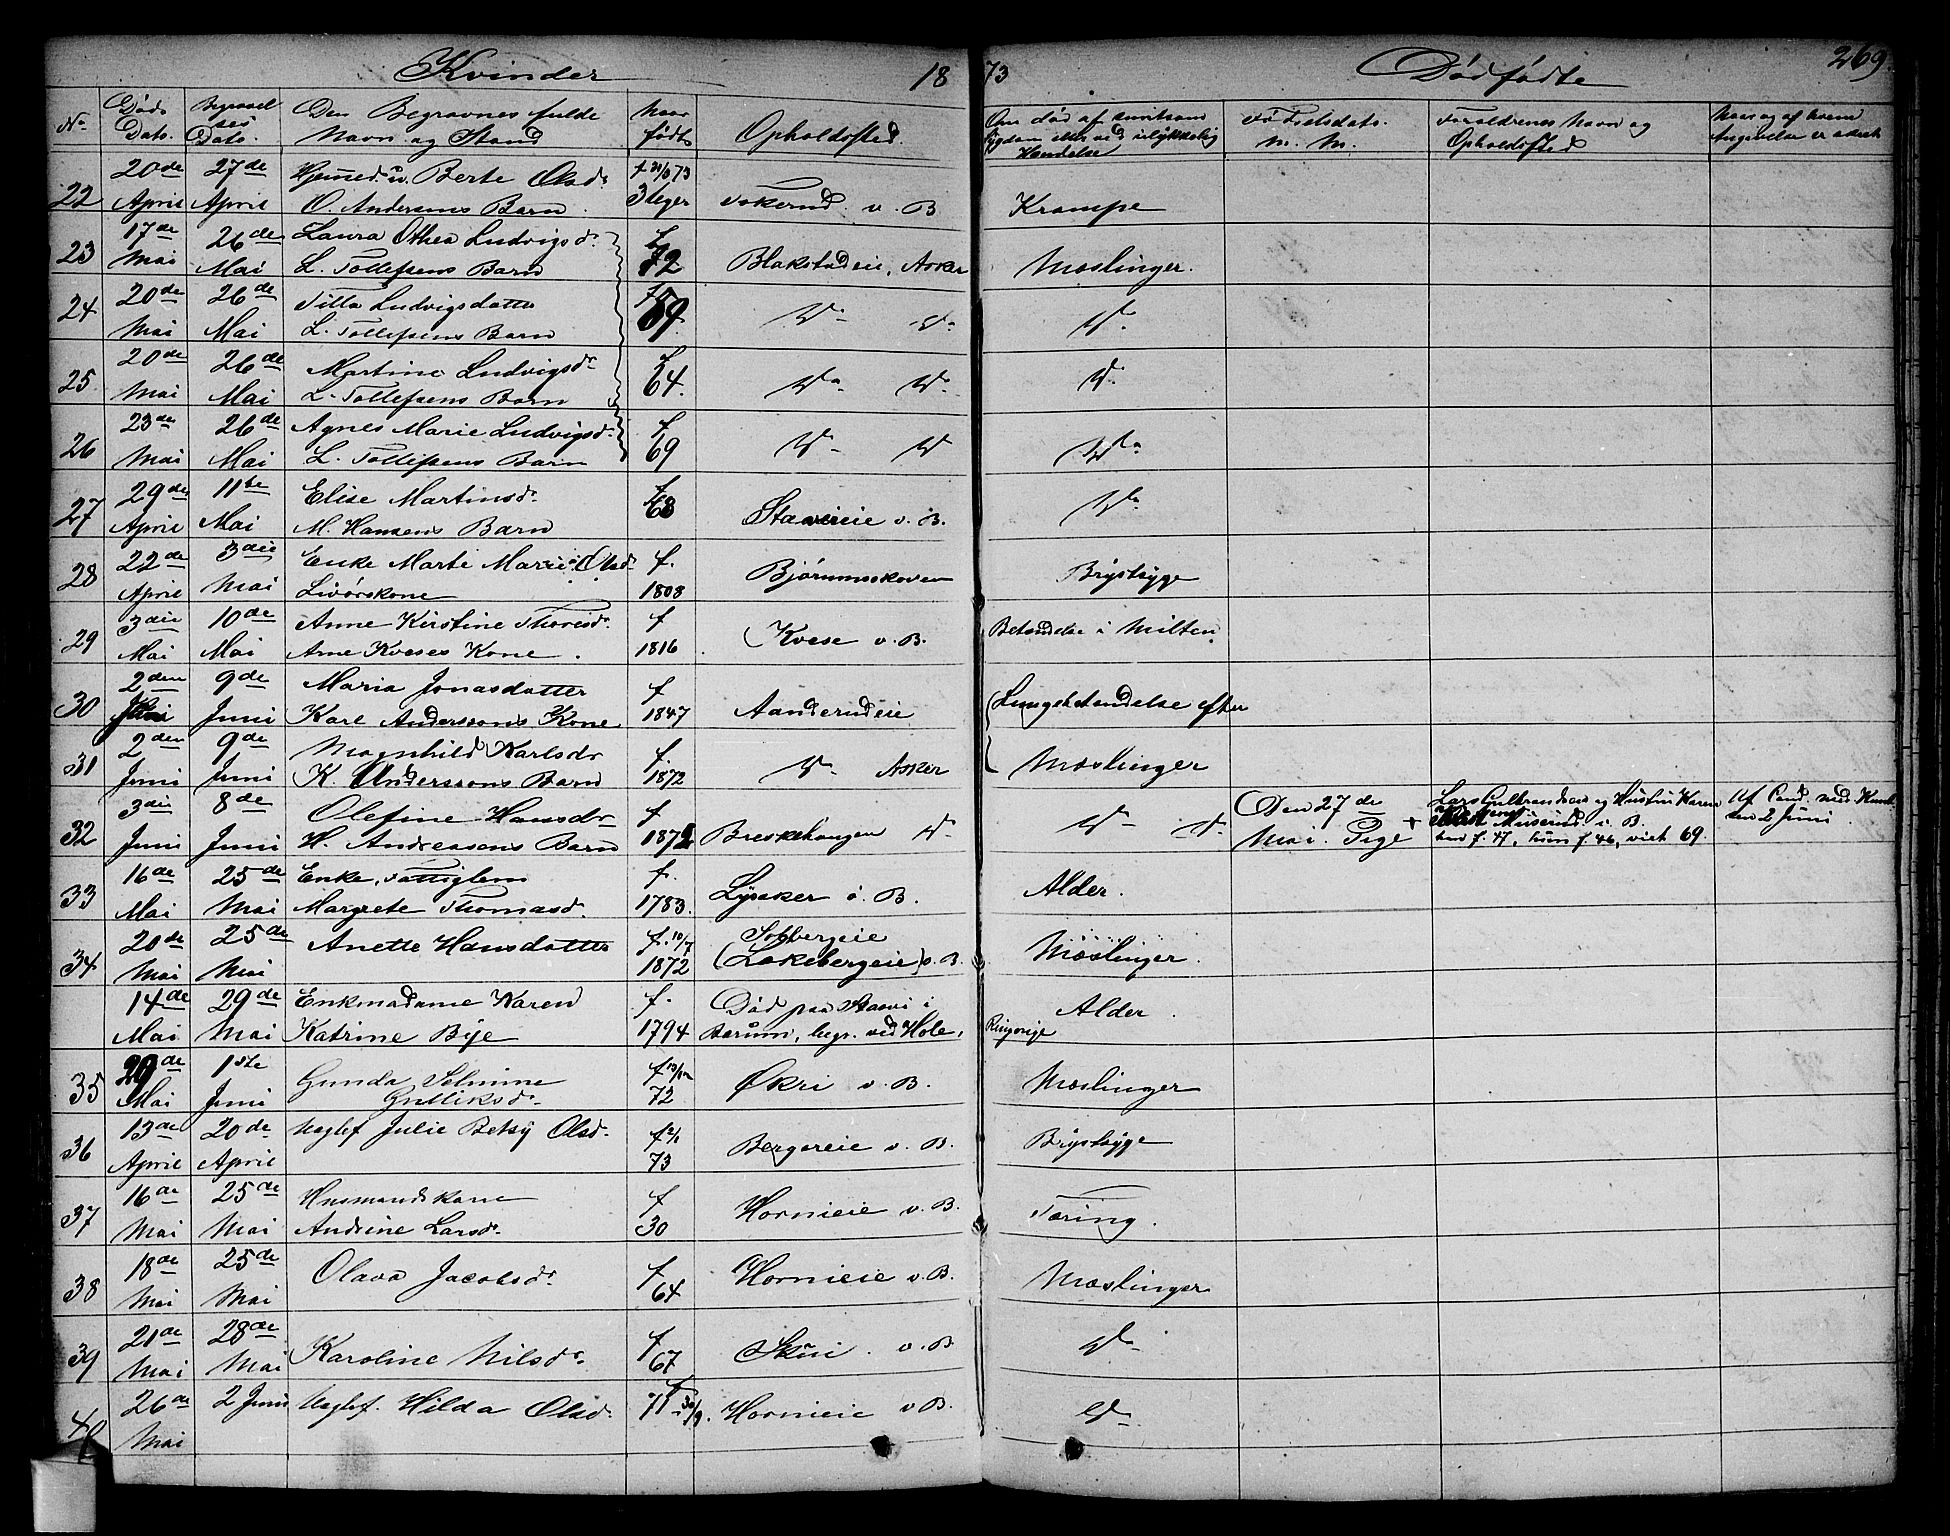 Kvinder 18 73 Dødfødte 269.
No Døds Dato. Begravelses Dato. Den Begravnes fulde Navn og Stand Naar født Opholdssted. Om død af smitsom Sygdom eller ved ulykkelig Hændelse Fødselsdato. M. M. Forældrenes Navn og Opholdssted Naar og af hvem Angivelse er skeet
22 20de April 27de April Hjemmed. u. Berte Olsdr O. Andersens Barn. f 30/3 73 3 Uger v. B. Krampe
23 17de Mai 26de Mai Laura Othea Ludvigsdr. L. Tollefsens Barn f. 72 Blakstadeie, Asker Mæslinger.
24 20de Mai 26de Mai Tilla Ludvigsdatter L. Tollefsens Barn f. 59. Do Do Do
25 20de Mai 26de Mai Martine Ludvigsdr L. Tollefsens Barn f 64. Do Do Do
26 23de Mai 26de Mai Agnes Marie Ludvigsdr. L. Tollefsens Barn f 69 Do Do Do
27 29de April 11te Mai Elise Martinsdr. M. Hansens Barn f 68 Stavereie v. B. Do
28 22de April 3die Mai Enke Marte Marie Olsdr Livørskone f. 1808 Bjørumsskoven Brystsyge
29 3die Mai 10de Mai Anne Kirstine Thoresdr. Arne Kveses Kone. f 1816 Kvese v. B. Betændelse i Milten.
30 2den Juni 9de Juni Maria Jonasdatter Karl Anderssons Kone f 1847 Aanderudeie Lungebetændelse efter
31 2den Juni 9de Juni Magnhild Karlsdr K. Anderssons Barn f. 1872 Do Asker Mæslinger
32 3die Juni 8de Juni Olefine Hansdr H. Andreasens Barn f 1872 Breskehaugen Do Do Do Den 27de Mai. Pige + Lars Gulbrandsen og Hustru Karen Muserud i B. han f. 47, hun f. 46, viet 69. Af Cand. med. den 2 Juni
33 16de Mai 25de Mai Enke, Fattiglem Margrete Thomasd. f. 1783. Lysaker ø. B. Alder.
34 20de Mai 25de Mai Anette Hansdatter f. 10/7 1872 Solbergeie (Løkebergeie) v. B. Mæslinger.
14de Mai 29de Mai Enkmadame Karen Katrine Bye f. 1794 Død paa Stavi i Bærum, begr. ved Hole, Ringerige Alder.
35 29de Mai 1ste Juni Gunda Selmine Gulliksdr. f 13/12 72 Økri v. B. Mæslinger
36 13de April 20de April Uægtef Julie Betsy Olsdr. f 2/1 73 Bergereie v. B. Brystsyge
37 16de Mai 25de Mai Husmandskone Andrine Larsdr. f 30 Hornieie v. B. Tæring.
38 18de Mai 25de Mai Olava Jacobsdr f 64 Hornieie v. B. Mæslinger
39 21de Mai 28de Mai Karoline Nilsdr. f 67 Skui. v. B Do
40 26de Mai 2 Juni Uægtef. Hilda Olsdr. f 71 30/9. Hornieie v. B. Do